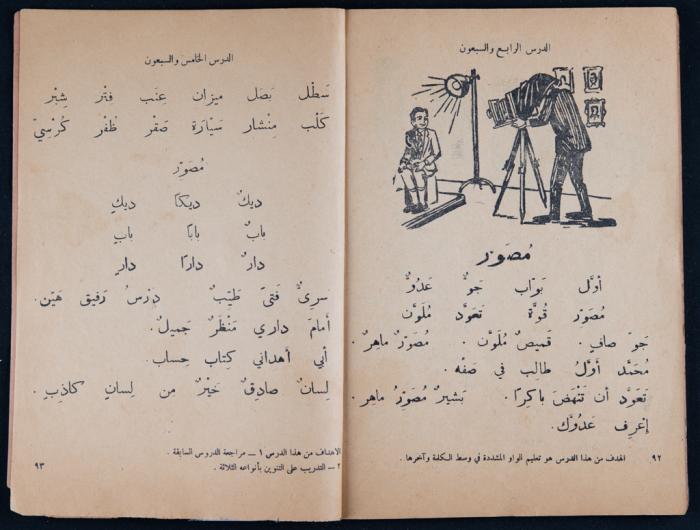 الدرس الرابع والسبعون
مُصَوِّر
أوَّل بَوَّاب جَوٌّ عَدُوٌّ
مُصَوِّر قُوَّة تَعَوَّد مُلَوَّن
جَوٌّ صافٍ. قَميصٌ مُلَوَّن. مُصَوِّرٌ ماهِرٌ.
مُحَمَّد أوَّلُ طالِب في صَفِّه.
تَعَوَّد أن تَنْهَضَ باكِرًا. بَشيرٌ مُصَوِّرٌ ماهِر.
إعْرِف عَدُوَّك.
الهدف من هذا الدرس هو تعليم الواو المشددة في وسط الكلمة وآخرها.
٩٢
الدرس الخامس والسبعون
سَطْل بَصَل ميزان عِنَب فِتْر شِبْر
كَلْب مِنْشار سَيّارَة صَقْر ظُفْر كُرْسِيّ
مُصَوِّر
ديكٌ ديكًا ديكٍ
بابٌ بابًا بابٍ
دارٌ دارًا دارٍ
سريٌّ فَتىً طَيِّبٌ دِرْسٌ رَفيق هَيِّن.
أمامَ داري مَنْظَرٌ جَميلٌ.
أبي أهداني كِتابَ حِساب.
لِسانٌ صادِقٌ خَيْرٌ مِن لِسانٍ كاذِبٍ.
الاهداف من هذا الدرس ١ — مراجعة الدروس السابقة.
٢ — التدريب على التنوين بأنواعه الثلاثة.
٩٣